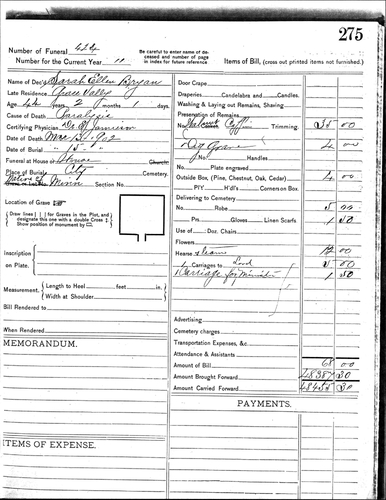 275
Number of Funeral 424
Number for the Current Year 11
Be carefu to enter name of deceased and number of page in index for future reference
Items of Bill, (cross out printed items not furnished.)
Name of Dec'd Sarah Ellen Bryan
Late Residence Grace Valley
Age, 44 years 2 months 1 days.
Cause of Death Paralysis
Certifying Physician Dr. Jamison
Date of Death Mar 13, 1902
Date of Burial " 15 "
Funeral at House or Church:
Place of Burial City Cemetery.
Section No.
Location of Grave
Draw lines | | for Graves in the Plot, and designate this one with a double Cross
Show position of monument by
Inscription on Plate.
Measurement. Length to Heel feet in.
Width at Shoulder
Bill Rendered to
When Rendered
MEMORANDUM.
ITEMS OF EXPENSE.
Door Crape
Draperies Candelabra and Candles
Washing & Laying out Remains, Shaving
Preservation of Remains
No. Walnut Coffin Trimming. 35 00
Dig Grave 4 00
No. Handles
Plate engraved
Outside Box, (Pine, Chestnut, Oak, Cedar) 4 00
PIY H'd'l's Corners on Box.
Delivering to Cemetery
No. Robe 5 00
Prs. Gloves Linen Scarfs 1 50
Use of Doz. Chairs
Flowers
Hearse & team 12 00
Carriages to Lord 5 00
1 Carriage for Minister 1 50
Advertising
Cemetery charges
Transportation Expenses, &c.
Attendance & Assistants
Amount of Bill 68 00
Amount Brought Forward 48387 30
Amount Carried Forward 48455 30
PAYMENTS.